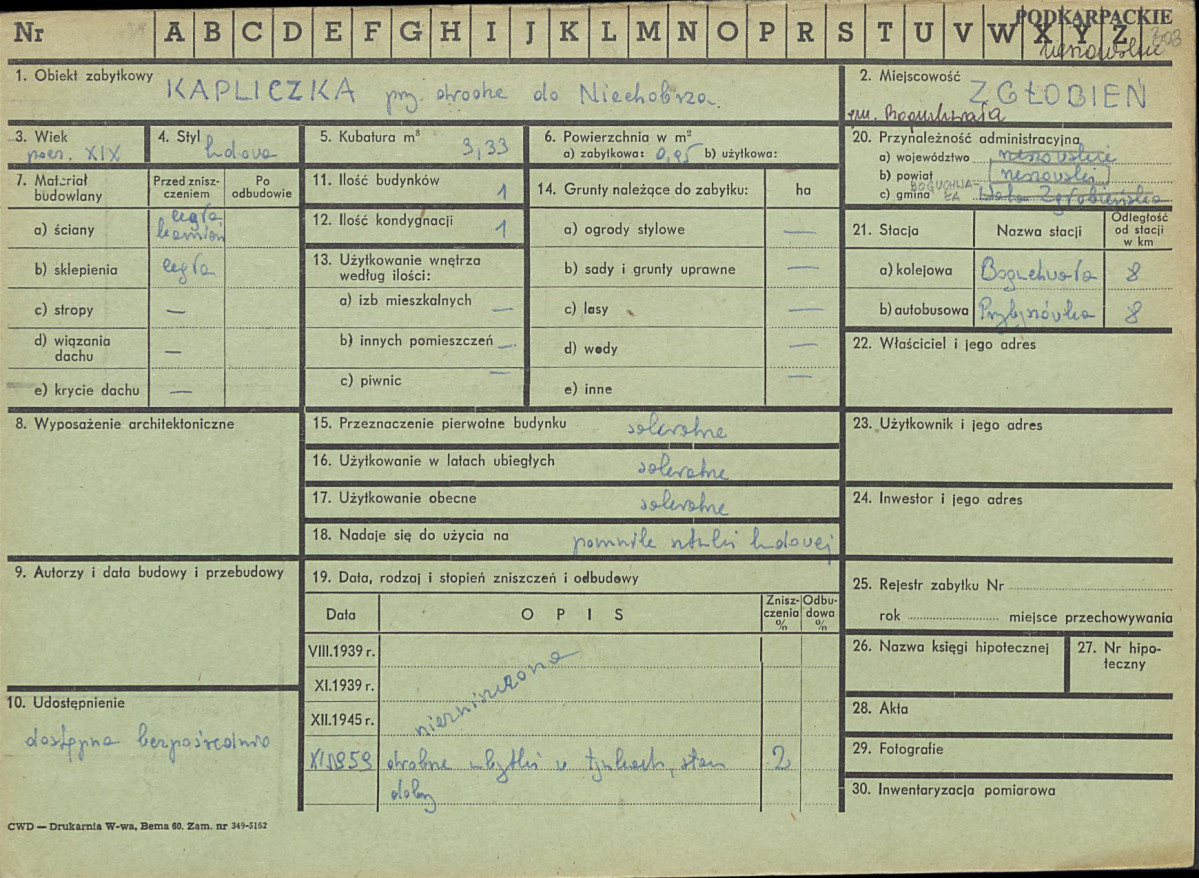 Nr A B C D E F G H I J K L M N O P R S T U V W X Y Z
PODKARPACKIE
rzeszowskie
303
1. Obiekt zabytkowy
KAPLICZKA przy drodze do Niechobrza.
2. Miejscowość
ZGŁOBIEŃ
gm. Boguchwała
3. Wiek
pocz. XIX
4. Styl
ludowa
5. Kubatura m³
3,33
6. Powierzchnia w m²
a) zabytkowa: 0,95 b) użytkowa:
7. Materiał budowlany
Przed zniszczeniem
Po odbudowie
a) ściany
cegła
kamień
b) sklepienia
cegła
c) stropy —
d) wiązania dachu —
e) krycie dachu —
8. Wyposażenie architektoniczne
9. Autorzy i data budowy i przebudowy
10. Udostępnienie
dostępna bezpośrednio
11. Ilość budynków 1
12. Ilość kondygnacji 1
13. Użytkowanie wnętrza według ilości:
a) izb mieszkalnych —
b) innych pomieszczeń —
c) piwnic —
14. Grunty należące do zabytku: ha
a) ogrody stylowe —
b) sady i grunty uprawne —
c) lasy —
d) wody —
e) inne —
15. Przeznaczenie pierwotne budynku
sakralne
16. Użytkowanie w latach ubiegłych
sakralne
17. Użytkowanie obecne
sakralne
18. Nadaje się do użycia na
pomnik sztuki ludowej
19. Data, rodzaj i stopień zniszczeń i odbudowy
Data
OPIS
Zniszczenia %
Odbudowa %
VIII.1939 r.
XI.1939 r.
XII.1945 r.
niezniszczona
XI.1959 drobne ubytki w tynkach, stan 2
dobry
20. Przynależność administracyjna
a) województwo rzeszowskie
b) powiat rzeszowski
c) gmina BOGUCHWAŁA Wola Zgłobieńska
21. Stacja
Nazwa stacji
Odległość od stacji w km
a) kolejowa Boguchwała 8
b) autobusowa Przybyszówka 8
22. Właściciel i jego adres
23. Użytkownik i jego adres
24. Inwestor i jego adres
25. Rejestr zabytku Nr
rok miejsce przechowywania
26. Nazwa księgi hipotecznej
27. Nr hipoteczny
28. Akta
29. Fotografie
30. Inwentaryzacja pomiarowa
CWD — Drukarnia W-wa, Bema 60. Zam. nr 349-5162